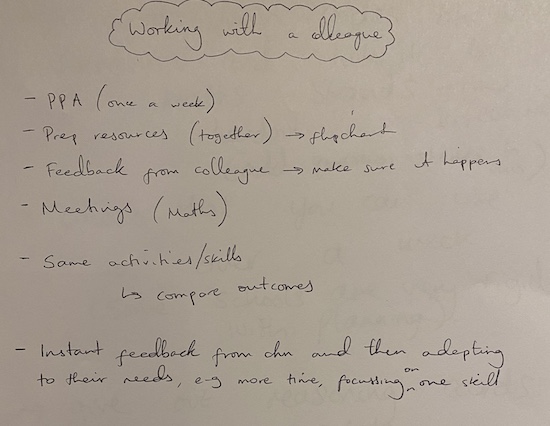 Working with a colleague
- PPA (once a week)
- Prep resources (together) → flipchart
- Feedback from colleague → make sure it happens
- Meetings (Maths)
- Same activities/skills
↳ compare outcomes
- Instant feedback from chn and then adapting
to their needs, e-g more time, focussing on one skill